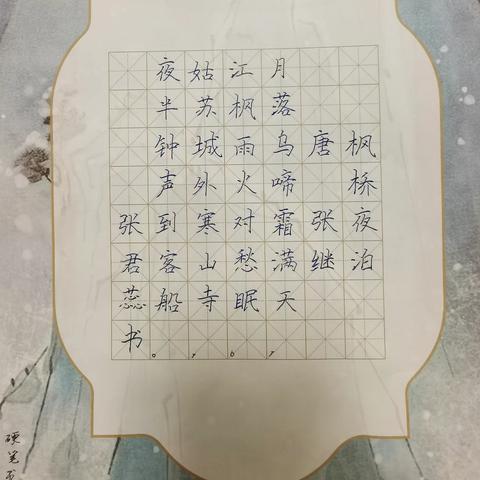 枫桥夜泊
唐 张继
月落乌啼霜满天
江枫雨火对愁眠
姑苏城外寒山寺
夜半钟声到客船
张君蕊书
硬笔